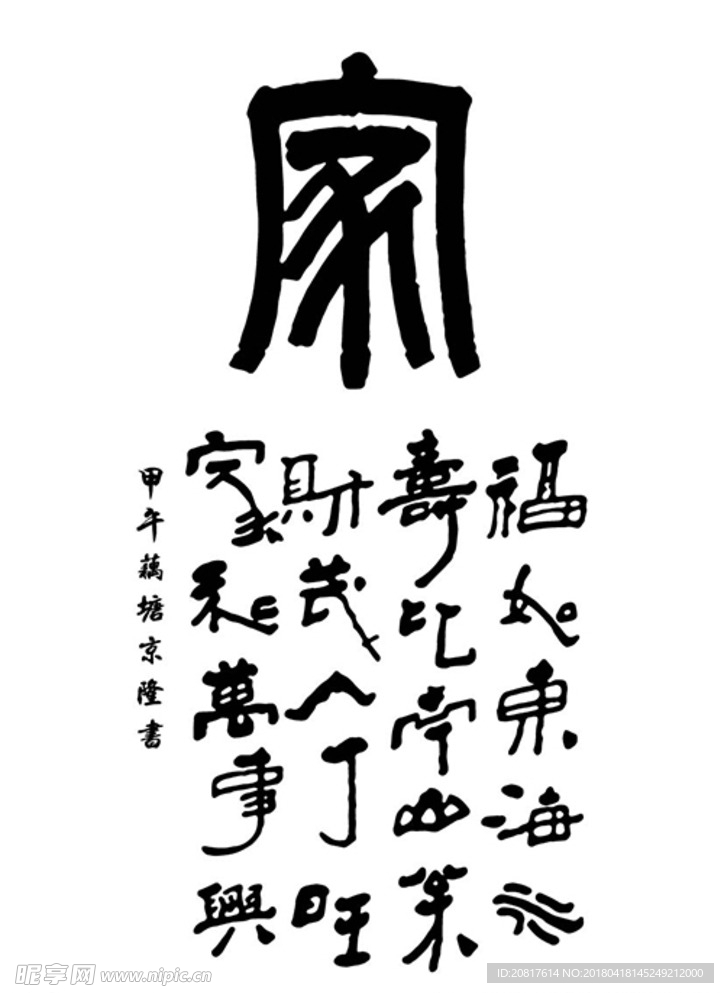 家
福如東海水
壽比南山
財茂人丁旺
家和萬事興
甲午藕塘京隆書
昵享网 www.nipic.cn
ID:20817614 NO:20180418145249212000